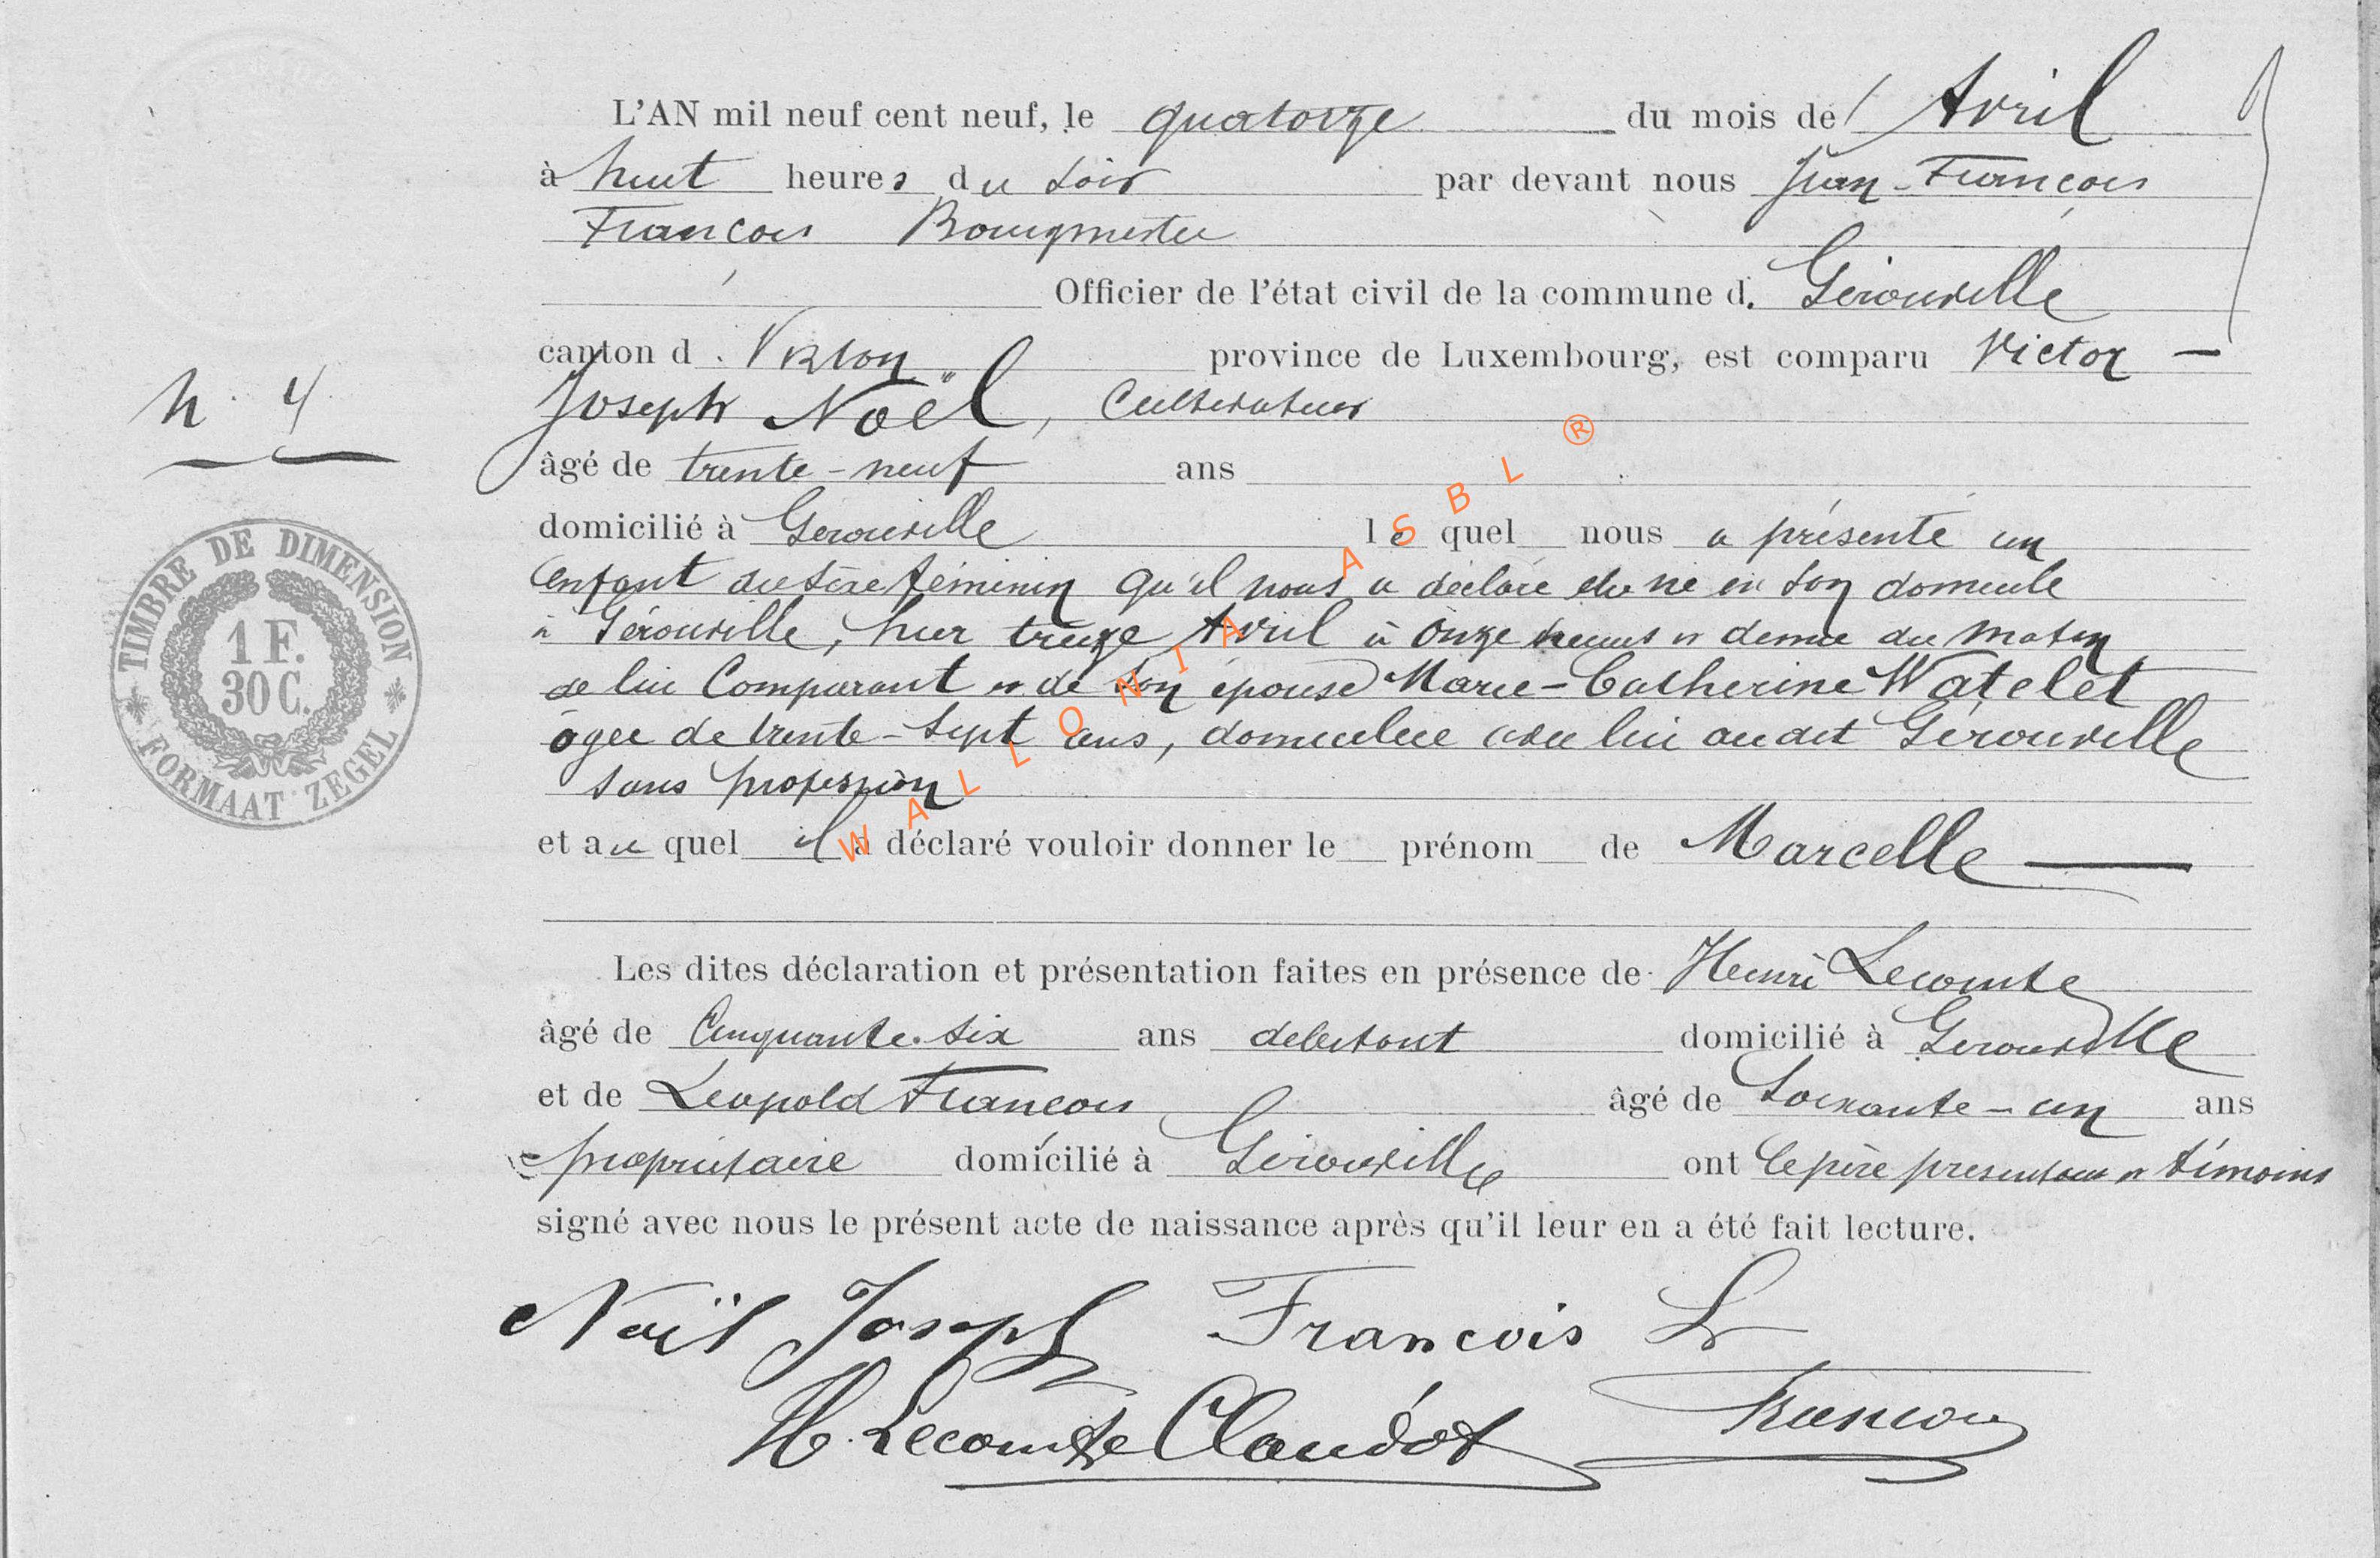 L'AN mil neuf cent neuf, le quatorze du mois de Avril
à huit heures du soir par devant nous Jean-François
François Bourgmestre
Officier de l'état civil de la commune d. Gérouville
canton d. Virton province de Luxembourg, est comparu Victor -
n. 4 Joseph Noël, Cultivateur
âgé de trente-neuf ans
domicilié à Gérouville le quel nous a présenté un
enfant du sexe féminin qu'il nous a déclaré être né en son domicile
à Gérouville, hier treize Avril à onze heures et demie du matin
de lui Comparant et de son épouse Marie-Catherine Watelet
âgée de trente-sept ans, domiciliée avec lui au dit Gérouville
sans profession
et au quel il a déclaré vouloir donner le prénom de Marcelle
Les dites déclaration et présentation faites en présence de Henri Lecomte
âgé de Cinquante-six ans débitant domicilié à Gérouville
et de Léopold François âgé de Soixante-un ans
propriétaire domicilié à Gérouville ont le père présentant et témoins
signé avec nous le présent acte de naissance après qu'il leur en a été fait lecture.
Noël Joseph François L
H. Lecomte Claudot François
TIMBRE DE DIMENSION
1 F.
30 C.
FORMAAT ZEGEL
WALLONIA ASBL ®